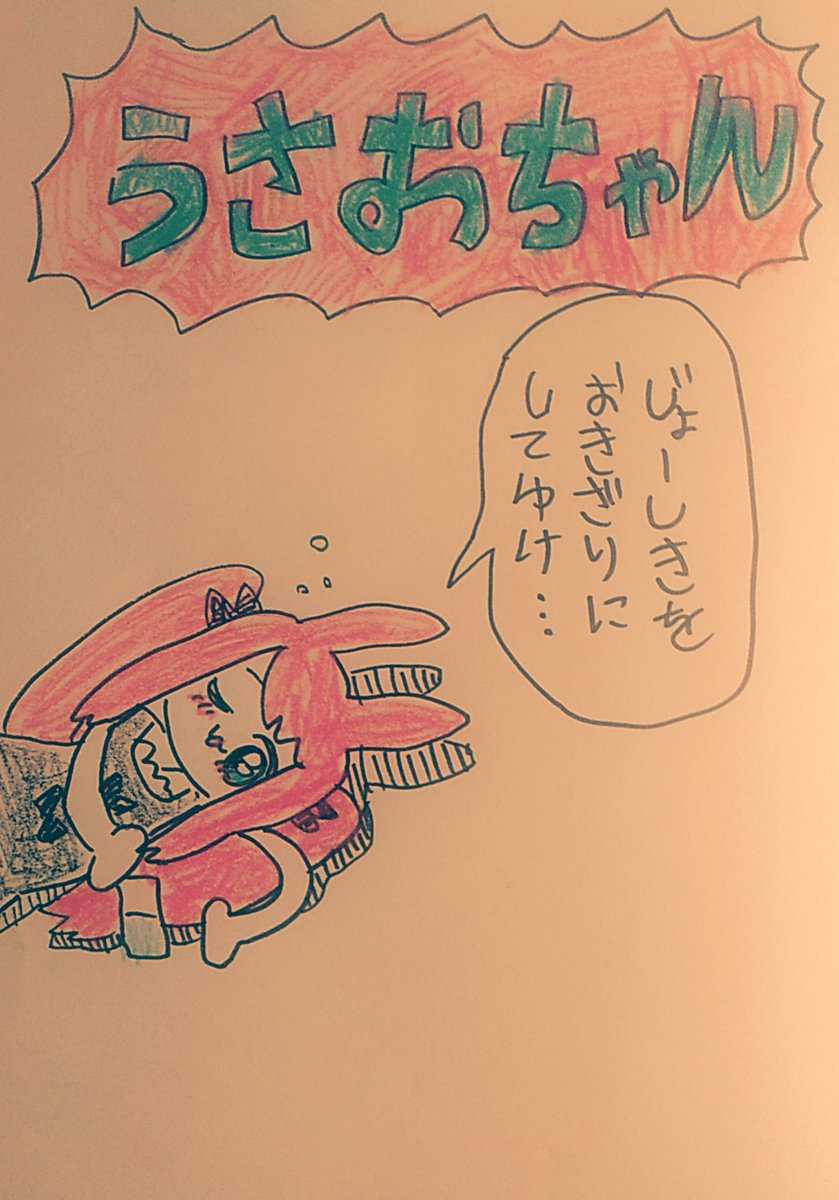 うさおちゃん
じょーしきを
おきざりに
してゆけ…